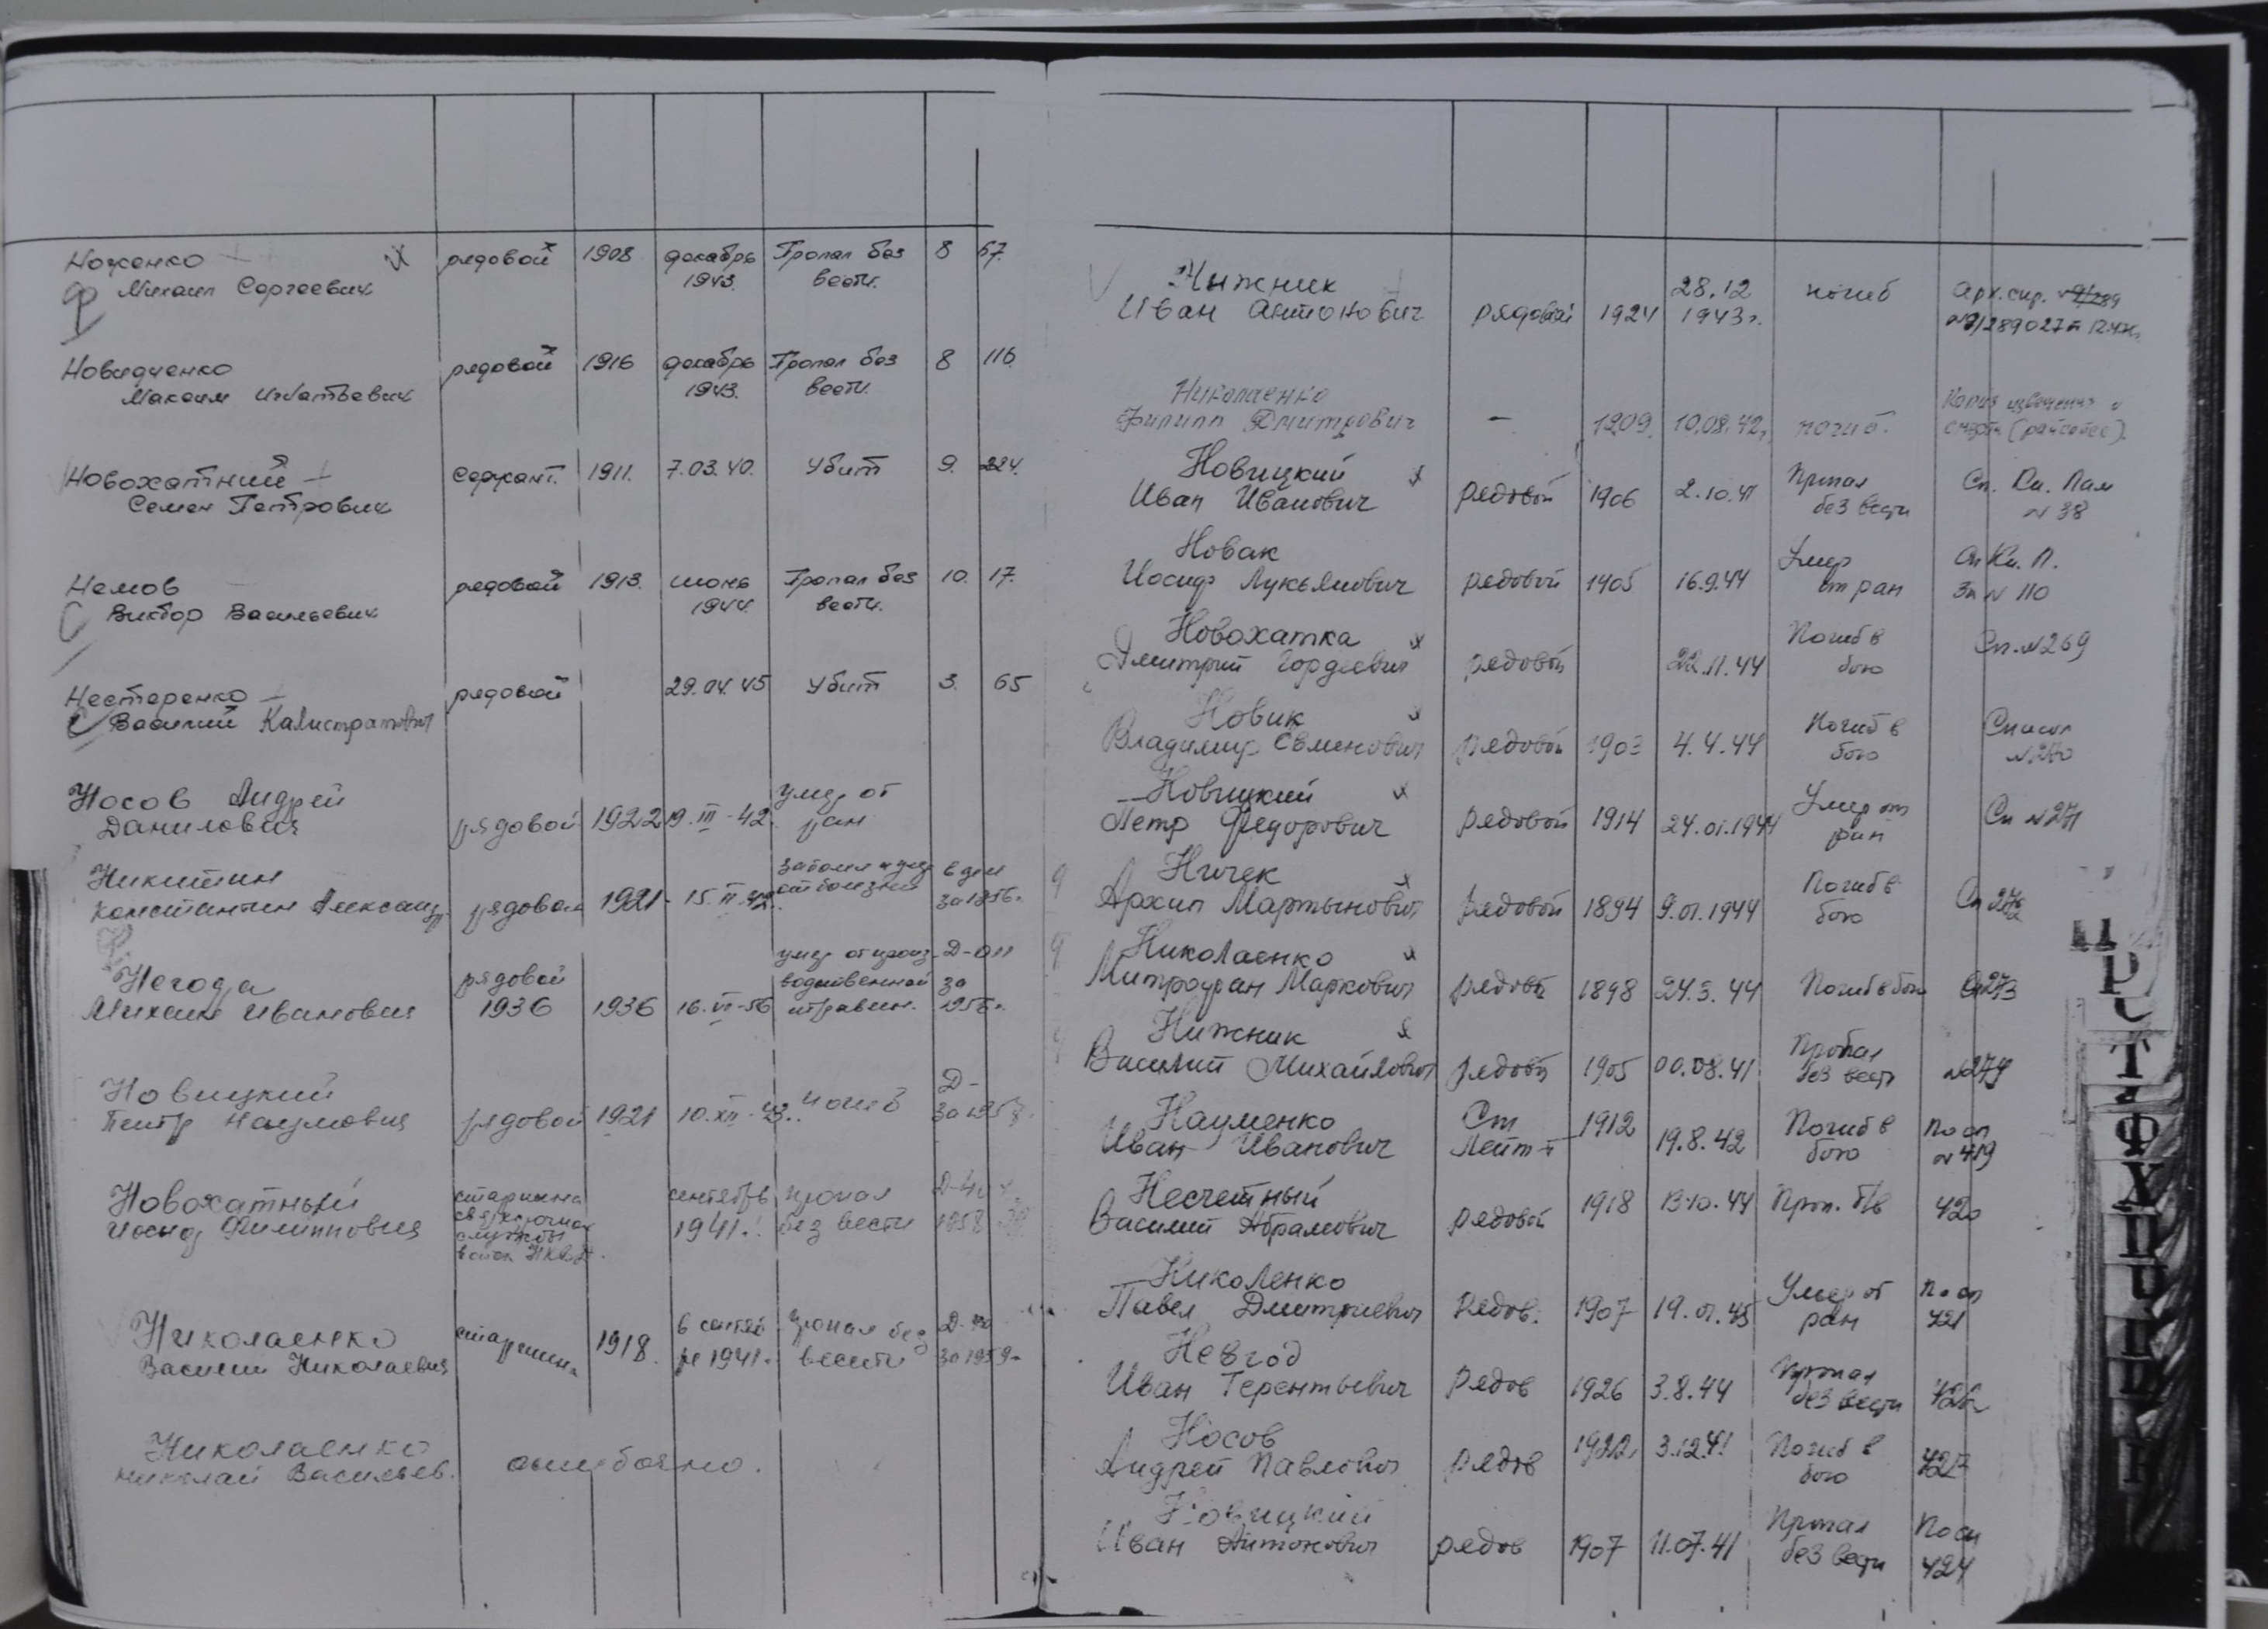 Ноженко рядовой 1908 декабрь Пропал без 8 67.
Михаил Сергеевич 1943. вести.
Новидченко рядовой 1916 декабрь Пропал без 8 116.
Максим Игнатьевич 1943. вести.
Новохатний сержант. 1911. 7.03.40. Убит 9. 224.
Семен Петрович
Немов рядовой 1913. июнь Пропал без 10. 17.
Виктор Васильевич 1944. вести.
Нестеренко рядовой 29.04.45 Убит 3. 65
Василий Калистратович
Носов Андрей умер от
Данилович рядовой 1922 19.III-42. ран
Никитин
Константин Александр. рядовой 1921 15.II.42. от болезни за 1956.
Негода рядовой умер от произ- Д-011
водственной за
Михаил Иванович 1936 1936 16.VI-56 отравлен. 1956г.
Новицкий Д-
Петр Наумович рядовой 1921 10.XII-43. погиб за 1958.
Новохатный старшина сентябрь пропал
Иосиф Филиппович сверхсрочной 1941. без вести 1958
службы
войск НКВД.
Николаенко старшина 1918. в сентяб пропал без
Василий Николаевич ре 1941. вести за 1959.
Николаенко
Николай Васильев. ошибочно.
Ныжник 28.12 погиб Арх. спр.
Иван Антонович рядовой 1924 1943г.
Николаенко Копия извещения о
Филипп Дмитрович — 1909. 10.08.42г. погиб. смерти (райсобес).
Новицкий Пропал Сп. Кн. Пам
Иван Иванович рядовой 1906 2.10.41 без вести N 38
Новак Умер Сп Кн. П.
Иосиф Лукьянович рядовой 1905 16.9.44 от ран За N 110
Новохатка Погиб в Сп. N 269
Дмитрий Гордеевич рядовой 22.11.44 бою
Новик Погиб в Список
Владимир Евменович рядовой 1903 4.4.44 бою N 270
Новицкий Умер от Сп N 271
Петр Федорович рядовой 1914 24.01.1944 ран
Ничек Погиб в Сп 272
Архип Мартынович рядовой 1894 9.01.1944 бою
Николаенко
Митрофан Маркович рядовой 1898 24.3.44 Погиб в бою Сп 273
Нижник Пропал
Василий Михайлович рядовой 1905 00.08.41 без вести N 274
Науменко Ст 1912 Погиб в По сп
Иван Иванович Лейт-т 19.8.42 бою N 419
Несчетный 1918 13.10.44 Проп. б/в 420
Василий Абрамович рядовой
Николенко Умер от По сп
Павел Дмитриевич Рядов. 1907 19.01.45 ран 421
Невгод Пропал
Иван Терентьевич Рядов 1926 3.8.44 без вести 422
Носов 1922 3.12.41 Погиб в
Андрей Павлович Рядов бою 423
Новицкий Пропал По сп
Иван Антонович рядов 1907 11.07.41 без вести 424
Р
С
Т
Ф
Х